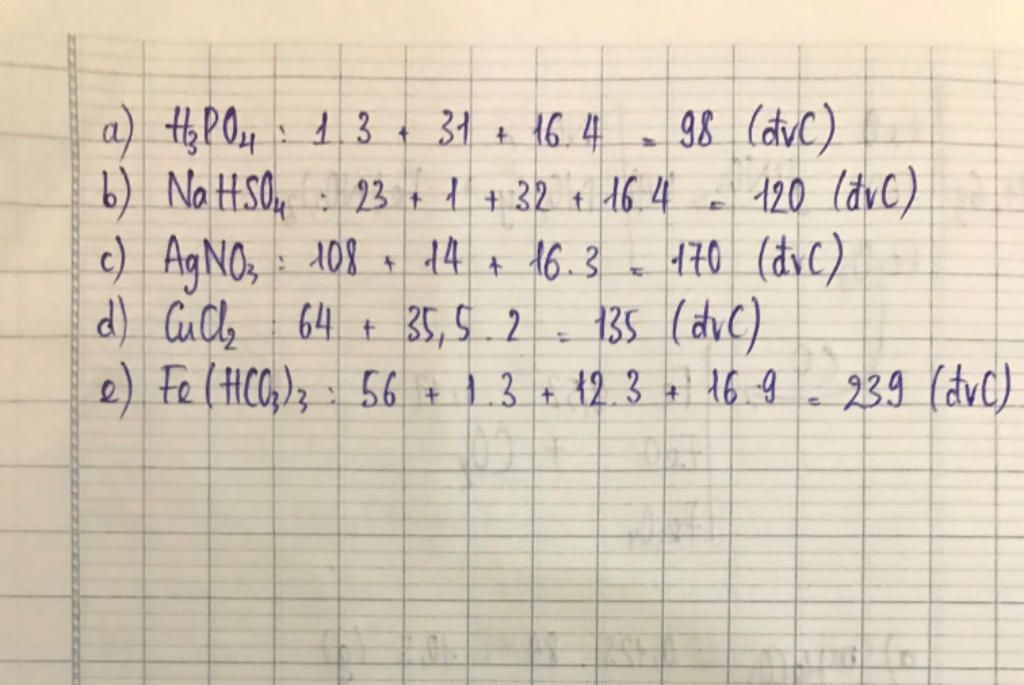 a) H₃PO₄ : 1.3 + 31 + 16.4 = 98 (đvC)
b) NaHSO₄ : 23 + 1 + 32 + 16.4 = 120 (đvC)
c) AgNO₃ : 108 + 14 + 16.3 = 170 (đvC)
d) CuCl₂ : 64 + 35,5.2 = 135 (đvC)
e) Fe(HCO₃)₃ : 56 + 1.3 + 12.3 + 16.9 = 239 (đvC)